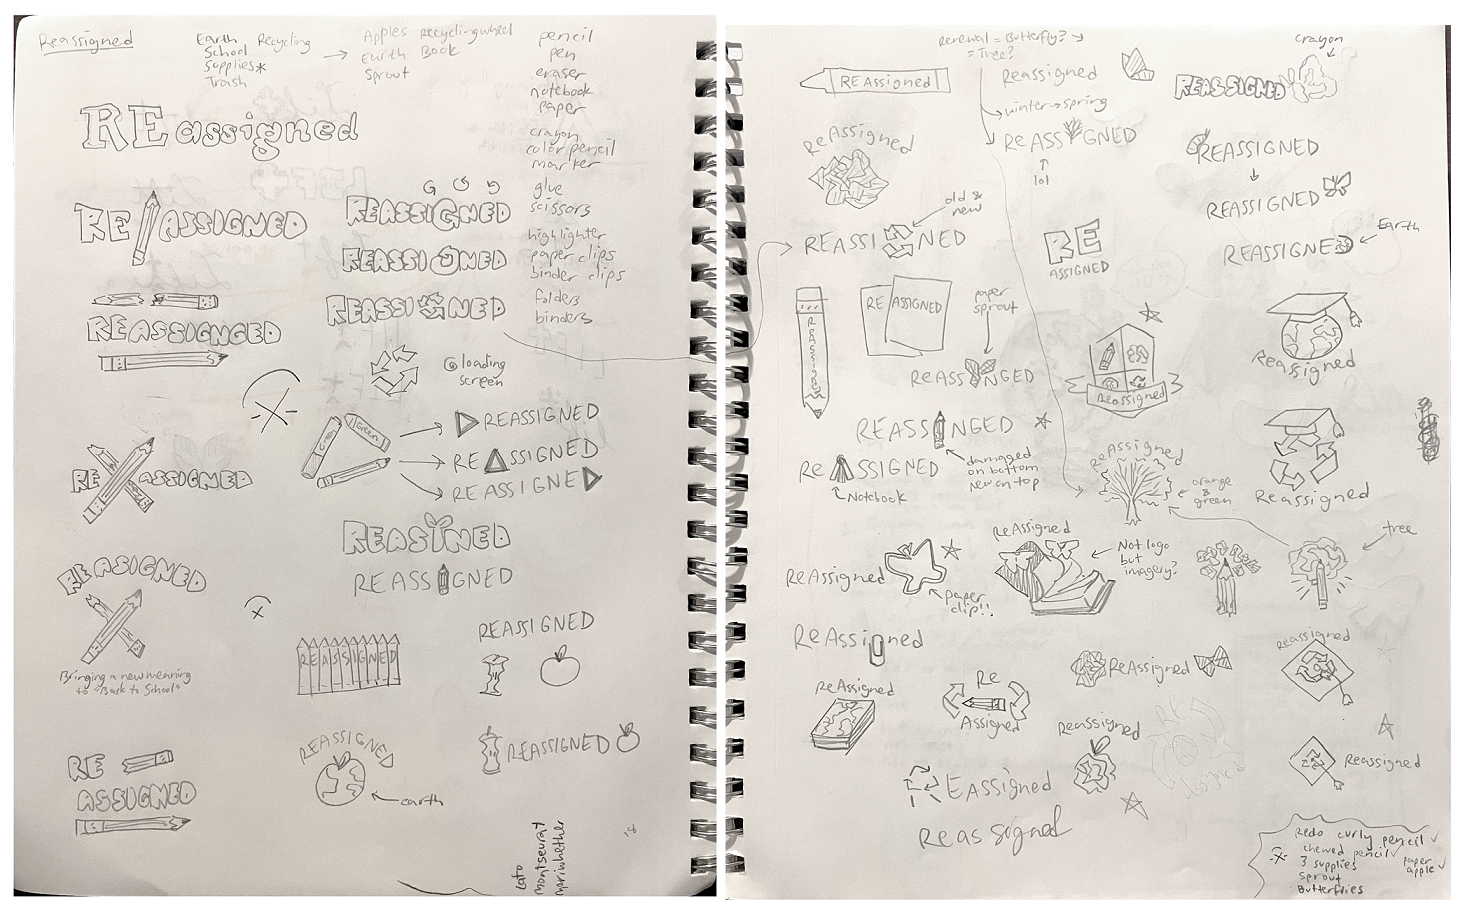 Reassigned
Earth Recycling
School
Supplies*
Trash
Apples Recycling wheel
Earth Book
Sprout
pencil
pen
eraser
notebook
paper
crayon
color pencil
marker
glue
scissors
highlighter
paper clips
binder clips
folders
binders
REassigned
RE/ASSIGNED
REASSIGNED
REASSIGNED
REASSI NED
REASSIGNGED
loading
screen
Green
REASSIGNED
RE ASSIGNED
REASSIGNE
RE ASSIGNED
REASINED
REASSIGNED
RE ASIGNED
Bringing a new meaning
to "Back to School"
REASSIGNED
REASSIGNED
REASSIGNED
REASSIGNED
earth
RE
ASSIGNED
Lato
montserrat
merriwhether
Renewal = Butterfly?
= Tree?
crayon
REAssigned
Reassigned
REASSIGNED
winter → spring
ReAssigned
REASSIGNED
lol
REASSIGNED
REASSIGNED
old &
new
REASSI NED
RE
ASSIGNED
REASSIGNE
Earth
REASSIGNED
RE ASSIGNED
paper
sprout
REASS NGED
Reassigned
Reassigned
REASS NGED
damaged
on bottom
New on top
Re ASSIGNED
Notebook
ReAssigned
orange
&
green
Reassigned
tree
ReAssigned
paper
clip!!
ReAssigned
Not logo
but
imagery?
ReAssigned
ReAssigned
Re
Assigned
ReAssigned
Reassigned
Reassigned
Reassigned
EAssigned
Reassigned
Redo curly pencil ✓
chewed pencil ✓
3 supplies
sprout
Butterflies
paper
apple ✓